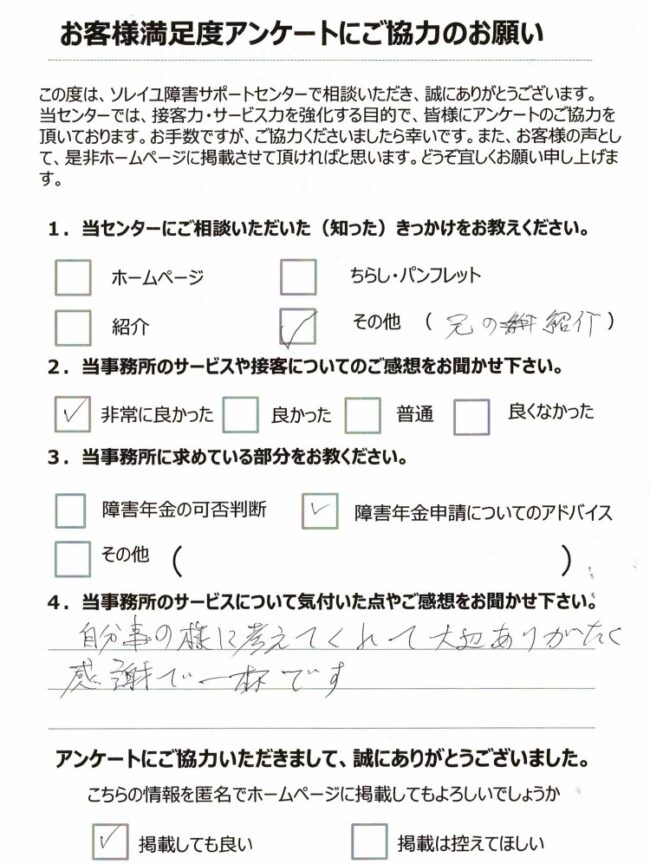 お客様満足度アンケートにご協力のお願い
この度は、ソレイユ障害サポートセンターで相談いただき、誠にありがとうございます。
当センターでは、接客力・サービス力を強化する目的で、皆様にアンケートのご協力を
頂いております。お手数ですが、ご協力くださいましたら幸いです。また、お客様の声とし
て、是非ホームページに掲載させて頂ければと思います。どうぞ宜しくお願い申し上げま
す。
1．当センターにご相談いただいた（知った）きっかけをお教えください。
ホームページ ちらし・パンフレット
紹介 その他 （兄の 紹介）
2．当事務所のサービスや接客についてのご感想をお聞かせ下さい。
非常に良かった 良かった 普通 良くなかった
3．当事務所に求めている部分をお教ください。
障害年金の可否判断 障害年金申請についてのアドバイス
その他 （ ）
4．当事務所のサービスについて気付いた点やご感想をお聞かせ下さい。
自分事の様に考えてくれて大辺ありがたく
感謝で一杯です
アンケートにご協力いただきまして、誠にありがとうございました。
こちらの情報を匿名でホームページに掲載してもよろしいでしょうか
掲載しても良い 掲載は控えてほしい